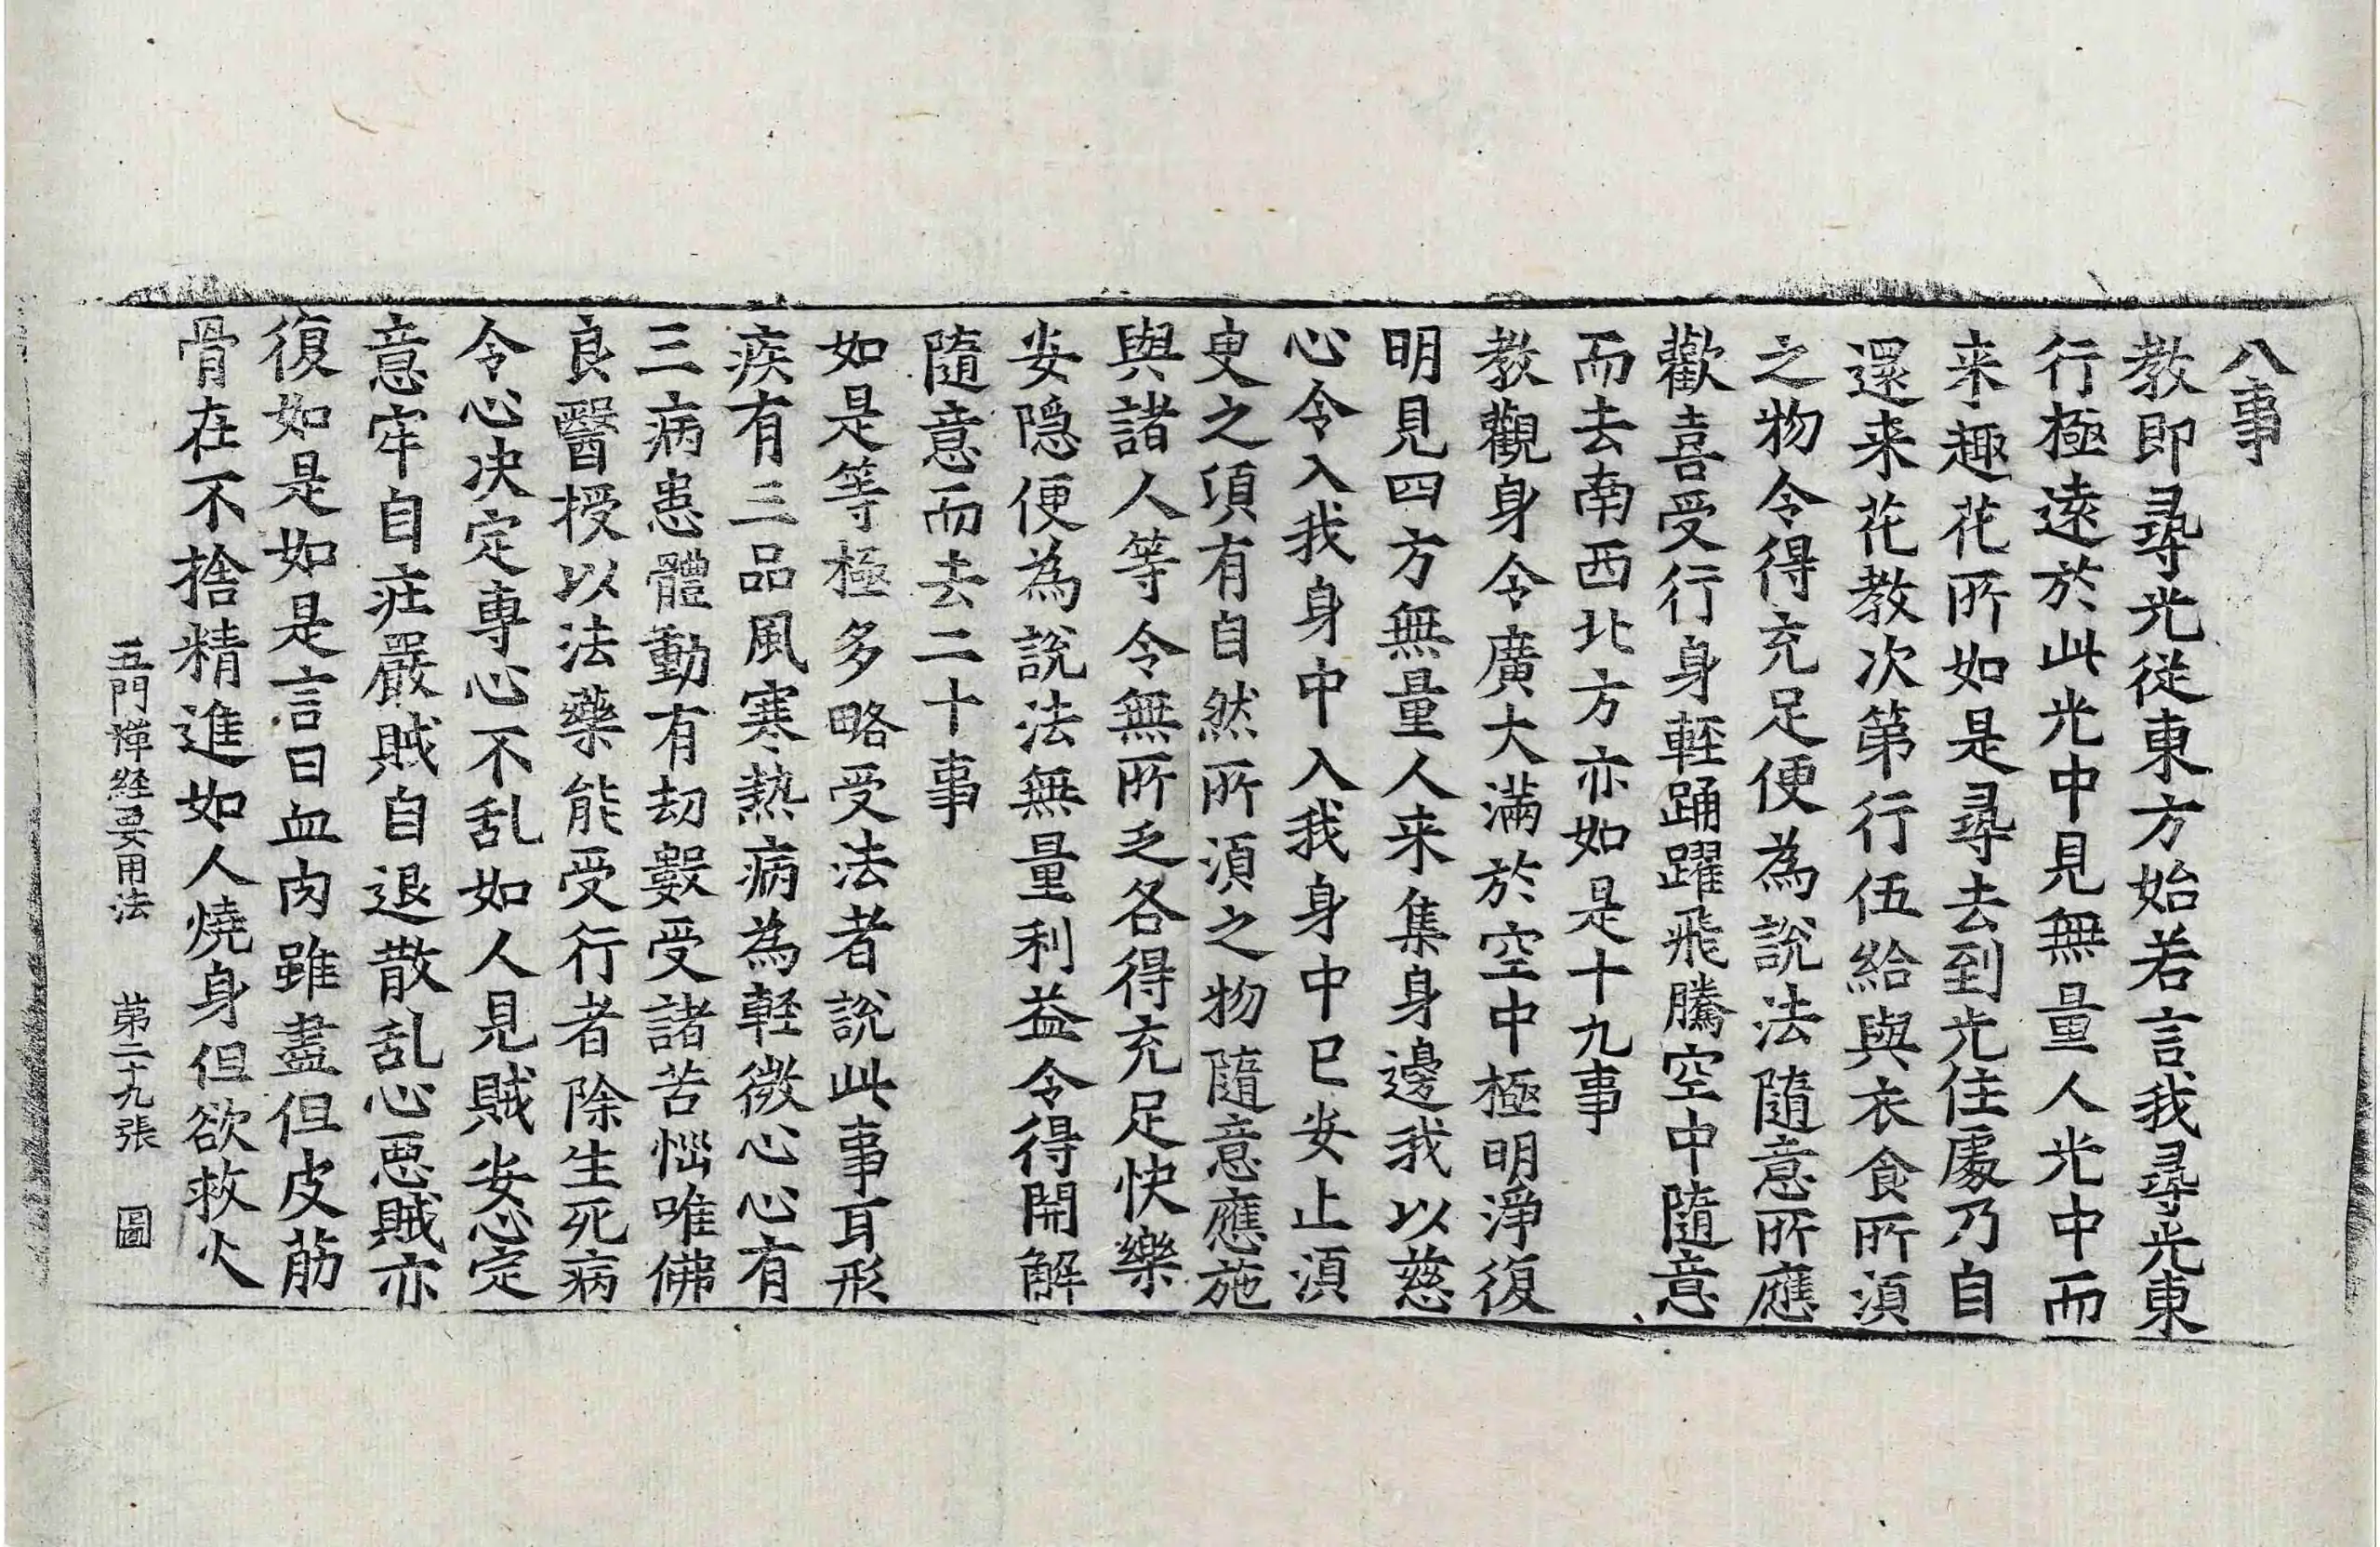 八事
教即尋光從東方始若言我尋光東
行極遠於此光中見無量人光中而
来趣花所如是尋去到光住處乃自
還来花教次第行伍給與衣食所湏
之物令得充足便為說法隨意所應
歡喜受行身輕踊躍飛騰空中隨意
而去南西北方亦如是十九事
教觀身令廣大滿於空中極明淨復
明見四方無量人来集身邊我以慈
心令入我身中入我身中已安止湏
臾之湏有自然所湏之物隨意應施
與諸人等令無所乏各得充足快樂
安隐便為說法無量利益令得開解
隨意而去二十事
如是等極多略受法者說此事耳形
疾有三品風寒熱病為輕微心心有
三病患體動有劫數受諸苦惱唯佛
良醫授以法藥能受行者除生死病
令心决定專心不乱如人見賊安心定
意牢自莊嚴賊自退散乱心惡賊亦
復如是如是言曰血肉雖盡但皮筋
骨在不捨精進如人燒身但欲救火
五門禪經要用法　第二十九張　圖